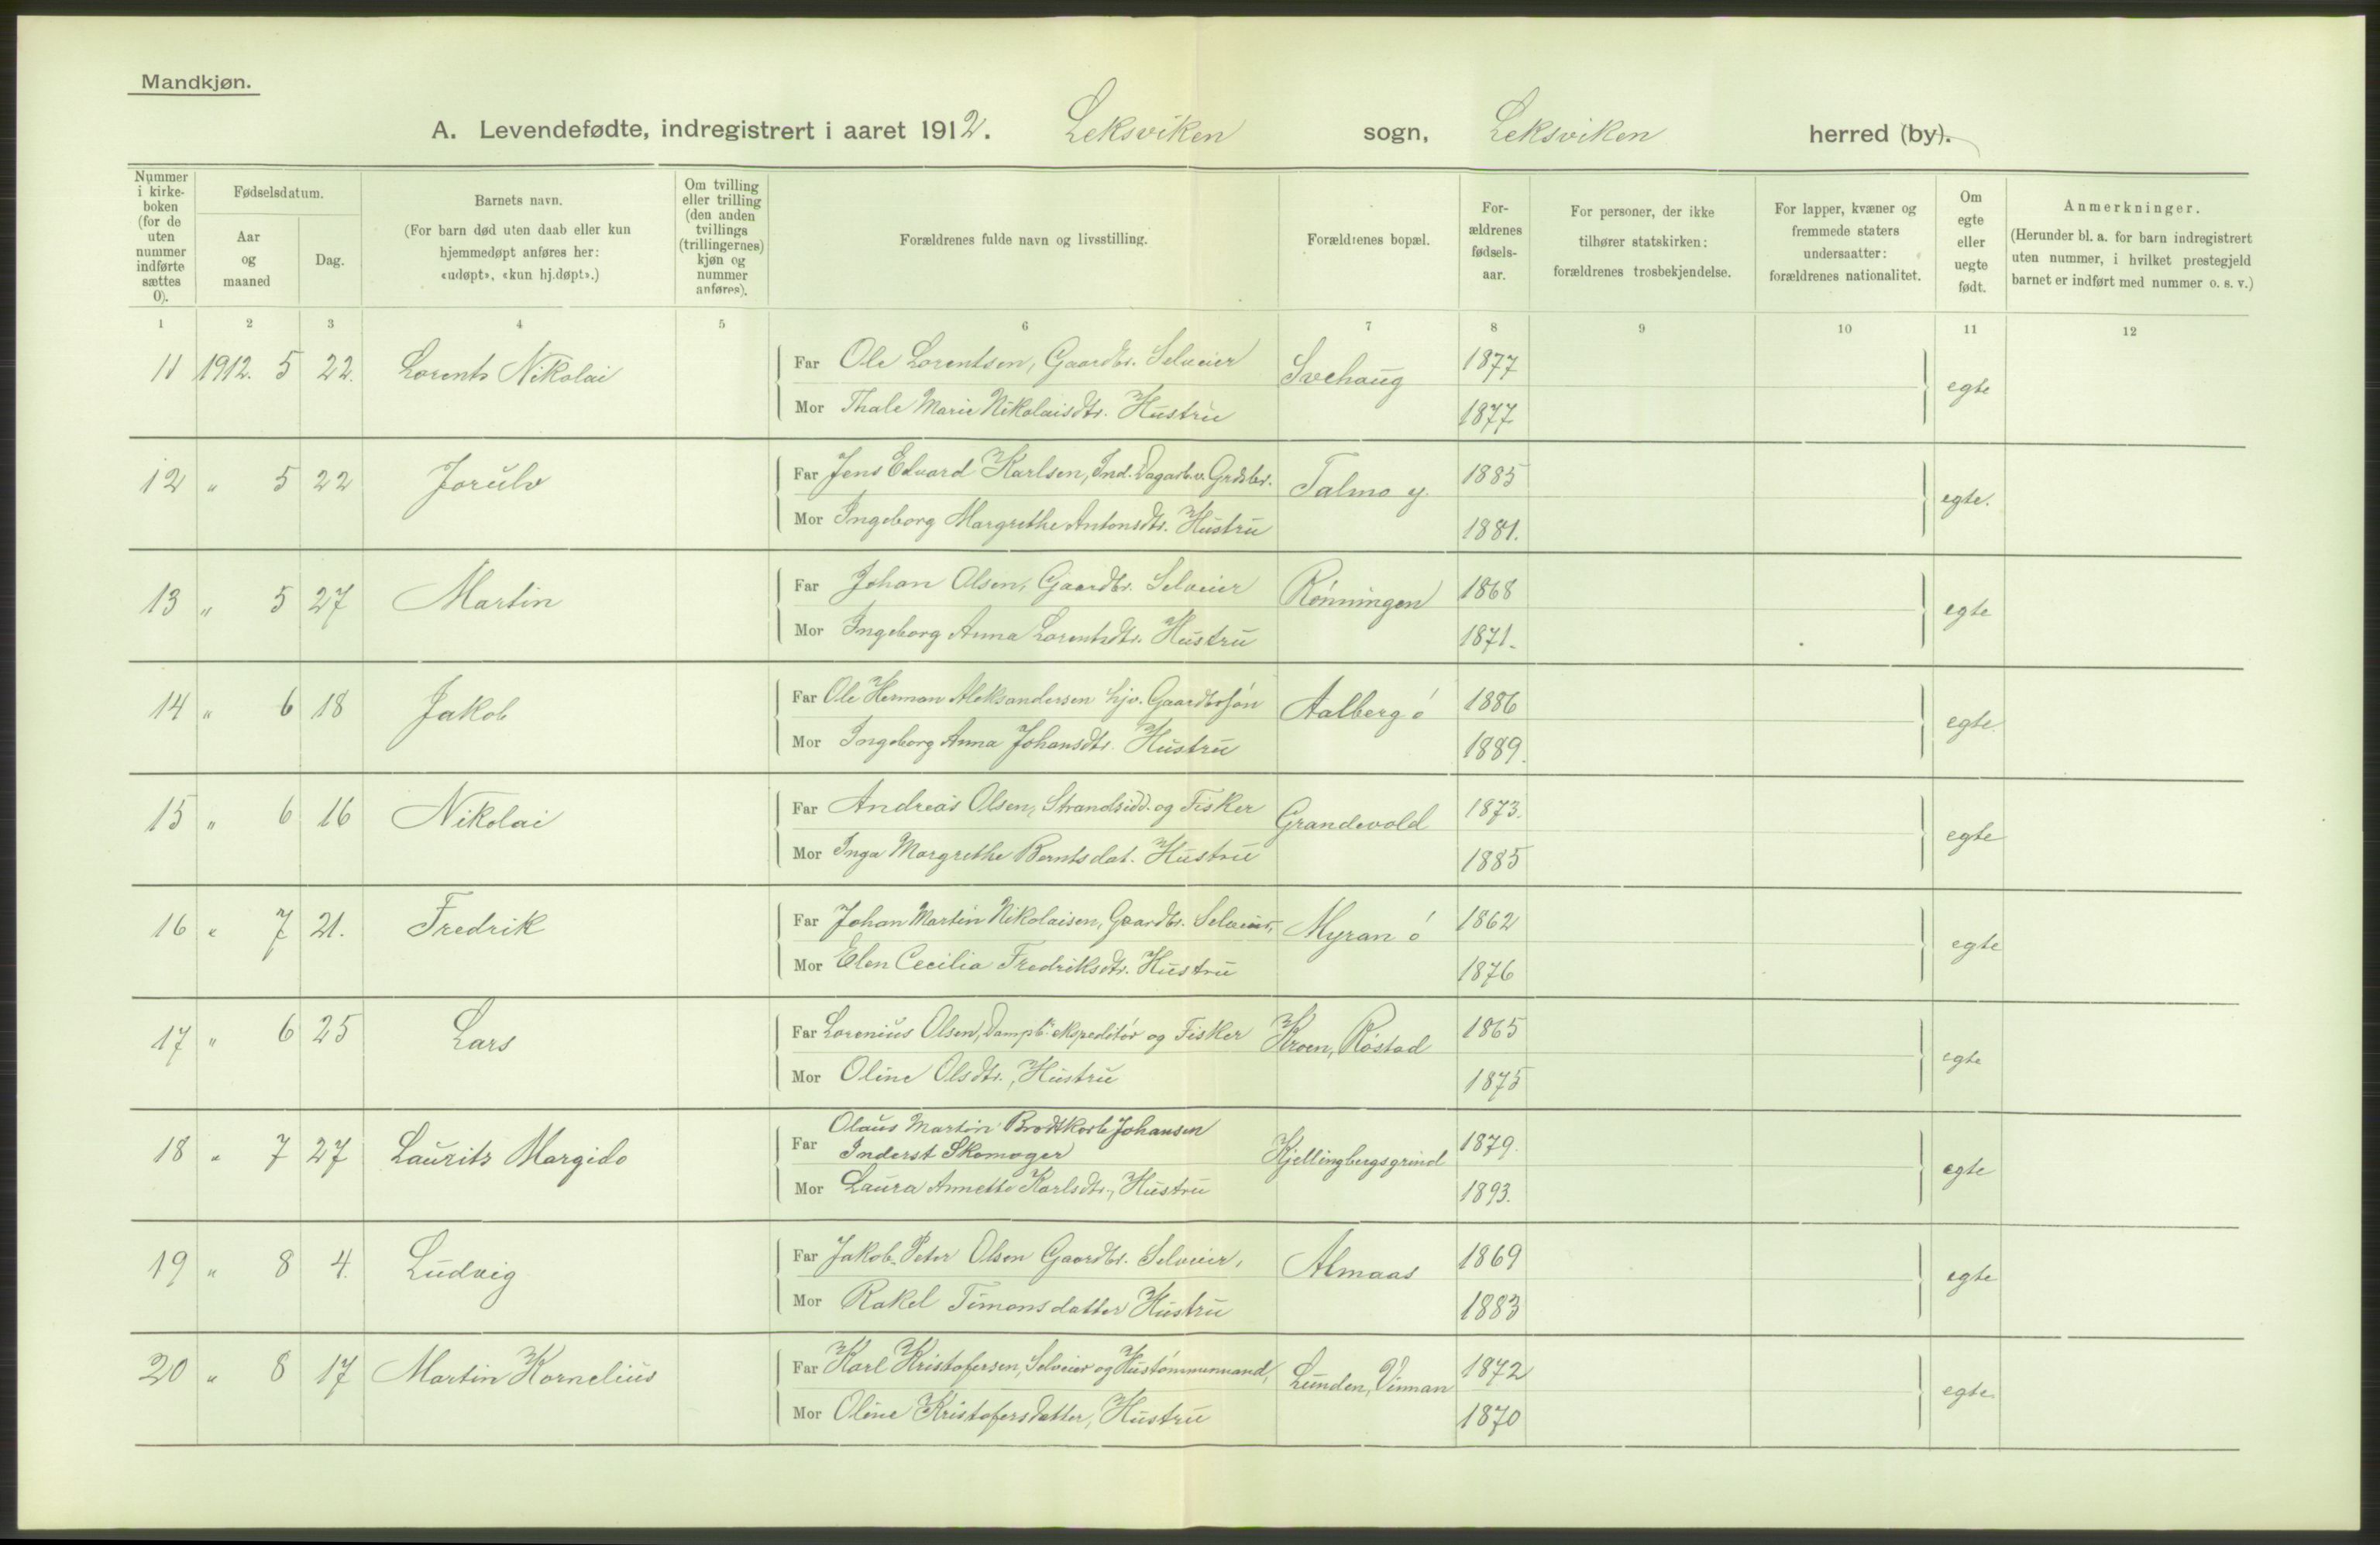 Mandkjøn.
A. Levendefødte, indregistrert i aaret 1912. Leksviken sogn, Leksviken herred (by).
Nummer i kirke- boken (for de uten nummer indførte sættes 0).
Fødselsdatum.
Aar og maaned
Dag.
Barnets navn.
(For barn død uten daab eller kun hjemmedøpt anføres her: «udøpt», «kun hj.døpt».)
Om tvilling eller trilling (den anden tvillings (trillingernes) kjøn og nummer anføres).
Forældrenes fulde navn og livsstilling.
Forældrenes bopæl.
For- ældrenes fødsels- aar.
For personer, der ikke tilhører statskirken: forældrenes trosbekjendelse.
For lapper, kvæner og fremmede staters undersaatter: forældrenes nationalitet.
Om egte eller uegte født.
Anmerkninger.
(Herunder bl. a. for barn indregistrert uten nummer, i hvilket prestegjeld barnet er indført med nummer o. s. v.)
1 2 3 4 5 6 7 8 9 10 11 12
11 1912. 5 22. Lorents Nikolai Far Ole Lorentsen, Gaardbr. Selveier Svehaug 1877 egte
Mor Thale Marie Nikolaisdtr. Hustru 1877
12 " 5 22 Jorulv Far Jens Edvard Karlsen, Ind. Dagarb. v. Grdsbr. Talmo y. 1885 egte.
Mor Ingeborg Margrethe Antonsdtr. Hustru 1881.
13 " 5 27 Martin Far Johan Olsen, Gaardbr. Selveier Rønningen 1868 egte
Mor Ingeborg Anna Lorentsdtr. Hustru 1871.
14 " 6 18 Jakob Far Ole Herman Aleksandersen hjv. Gaardbrsøn Aalberg ø 1886 egte.
Mor Ingeborg Anna Johansdtr. Hustru 1889.
15 " 6 16 Nikolai Far Andreas Olsen, Strandsidd. og Fisker Grandevold 1873. egte
Mor Inga Margrethe Berntsdat. Hustru 1885
16 " 7 21. Fredrik Far Johan Martin Nikolaisen, Gaardbr. Selveier, Myran ø 1862 egte
Mor Elen Cecilia Fredriksdtr. Hustru 1876
17 " 6 25 Lars Far Lorenius Olsen, Dampb. ekspeditør og Fisker Kroen, Røstad 1865 egte
Mor Oline Olsdtr., Hustru 1875
18 " 7 27 Laurits Margido Far Olaus Martin Brodtkorb Johansen
Inderst Skomager Kjellingbergsgrind 1879. egte
Mor Laura Annette Karlsdtr., Hustru 1893.
19 " 8 4. Ludvig Far Jakob Peter Olsen Gaardbr. Selveier, Almaas 1869 egte
Mor Rakel Timansdatter Hustru 1883
20 " 8 17 Martin Kornelius Far Karl Kristofersen, Selveier og Hustømmermand, Lunden, Vinnan 1872 egte
Mor Oline Kristofersdatter, Hustru 1870